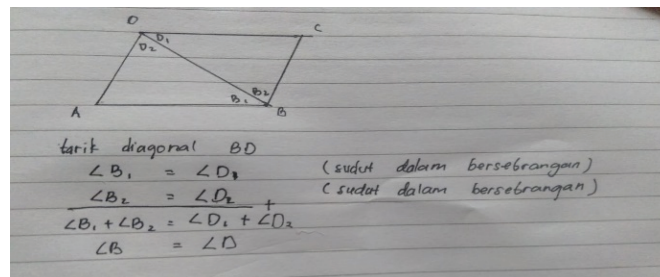 D
C
D₁
D₂
B₂
B₁
A
B
tarik diagonal BD
∠B₁ = ∠D₁ (sudut dalam bersebrangan)
∠B₂ = ∠D₂ (sudut dalam bersebrangan)
+
∠B₁ + ∠B₂ = ∠D₁ + ∠D₂
∠B = ∠D